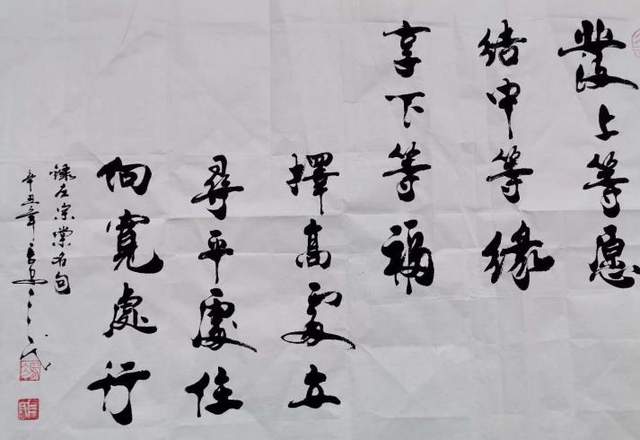 發上等愿
結中等緣
享下等福
擇高處立
尋平處住
向寬處行
錄左宗棠名句
辛丑年